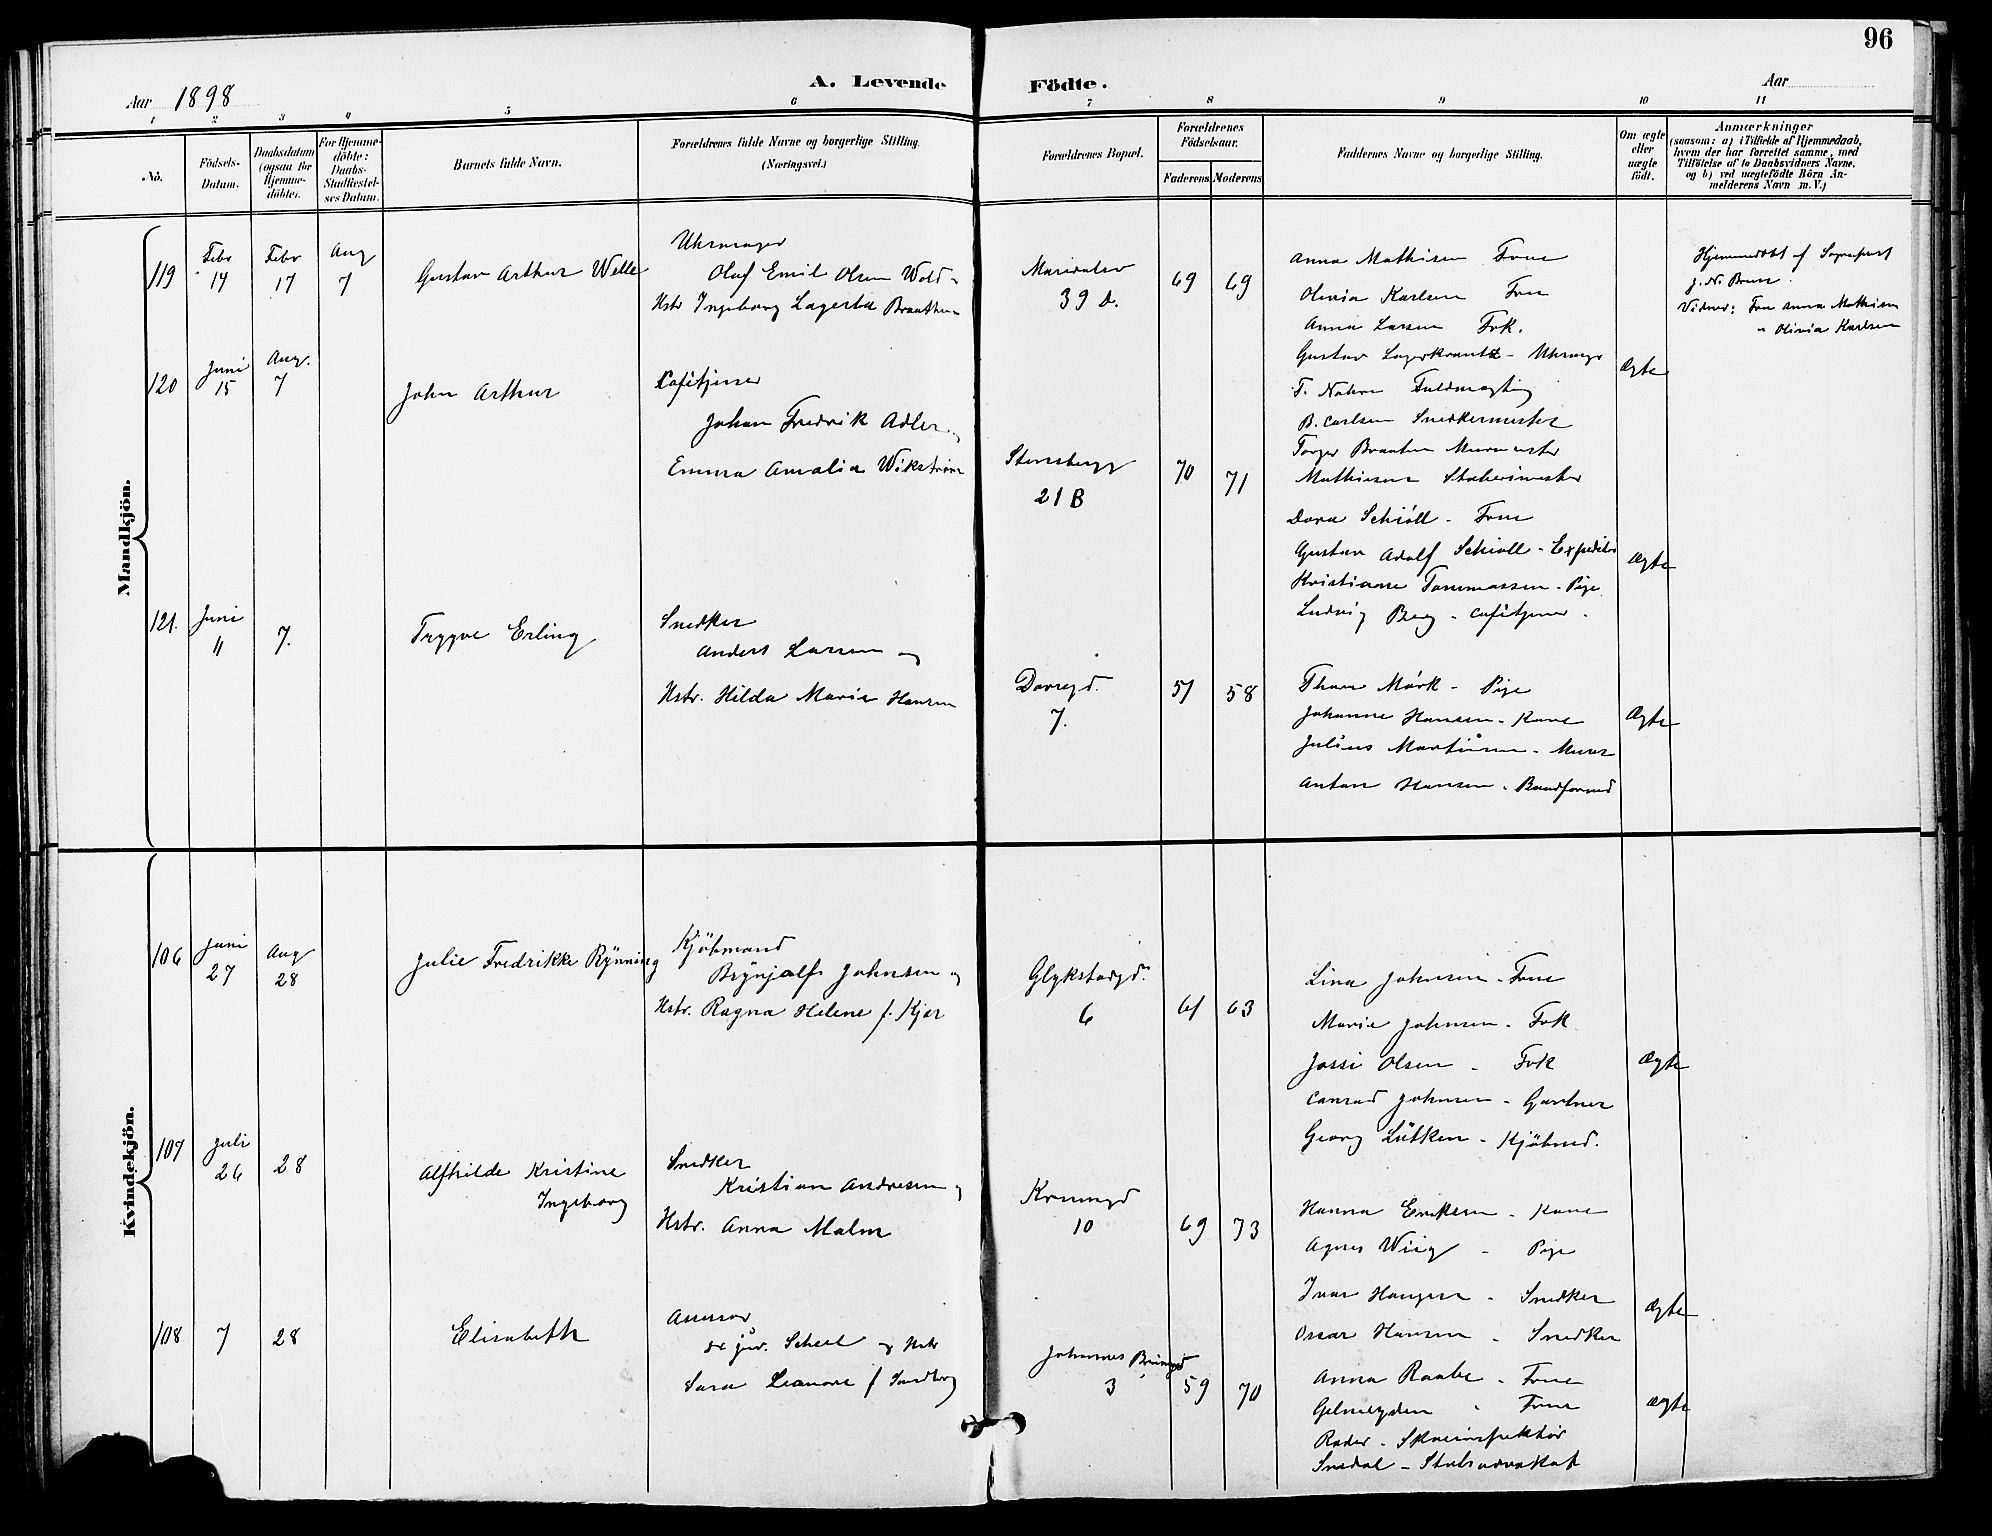 96
A. Levende Födte.
Aar 1898
Aar
1 2 3 4 5 6 7 8 9 10 11
No.
Födsels-
Datum.
Daabsdatum
(ogsaa for
Hjemme-
döbte).
For Hjemme-
döbte:
Daabs-
Stadfæstel-
ses Datum.
Barnets fulde Navn.
Forældrenes fulde Navne og borgerlige Stilling.
(Næringsvei.)
Forældrenes Bopæl.
Forældrenes
Födselsaar.
Faderens
Moderens
Faddernes Navne og borgerlige Stilling.
Om ægte
eller
uægte
födt.
Anmærkninger
(saasom: a) i Tilfælde af Hjemmedaab,
hvem der har forrettet samme, med
Tilföielse af to Daabsvidners Navne,
og b) ved uægtefödte Börn An-
melderens Navn m.V.)
Mandkjön.
119
Febr
14
Febr
17
Aug
7
Gustav Arthur Welle
Uhrmager
Oluf Emil Olsen Wold
Hstr Ingeborg Lagerta Braathen
39 D.
69
69
Anna Mathisen Frue
Olivia Karlsen Frue
Anna Larsen Frk.
Gustav Lagerkrantz - Uhrmager
Fuldmægtig
B. Carlsen Snedkermester
Torger Braaten Murmester
Mathisen
Ægte
Hjemmedöbt af Sognepræst
Vidner: Fru Anna Mathisen
" Olivia Karlsen
120
Juni
15
Aug.
7
John Arthur
Cafétjener
Johan Fredrik Adler
Emma Amalia Wikström
Stensberggd
21 B
70
71
Dora Schiöll - Frue
Gustav Adolf Schiöll - Expeditör
Kristiane Tommassen - Pige
Ludvig Berg - Cafétjener.
Ægte
121.
Juni
11
7.
Trygve Erling
Snedker
Anders Larsen og
Hstr. Hilda Marie Hansen
Dovregd.
7.
57
58
Thora Mörk - Pige
Johanne Hansen - Kone
Julius Martinsen - Murer
Anton Hansen - Baadformd
Ægte
Kvindekjön.
106
Juni
27
Aug
28
Julie Fredrikke Rynning
Kjöbmand
Brynjolf Johnsen og
Hstr. Ragna Helene f. Kjær
Glykstadgd.
6
61
63
Lina Johnsen - Frue
Marie Johnsen - Frk
Jossi Olsen - Frk
Conrad Johnsen - Gartner
Georg Lütken - Kjöbmd.
Ægte
107
Juli
26
28
Alfhilde Kristine
Ingeborg
Snedker
Kristian Andresen og
Hstr. Anna Malm
10
69
73
Hanna Eriksen - Kone
Agnes Wiig - Pige
Ivar Haugen - Snedker
Oscar Hansen - Snedker
Ægte
108
7
28
Elisabeth
Assessor
dr jur. Scheel og Hstr
Sara Leonore f. Sundberg
Johannes Brungd
3
59
70
Anna Raabe - Frue
Gelmeyden " Frue
Roder - Skoleinspektör
Smedal - Statsadvokat
Ægte